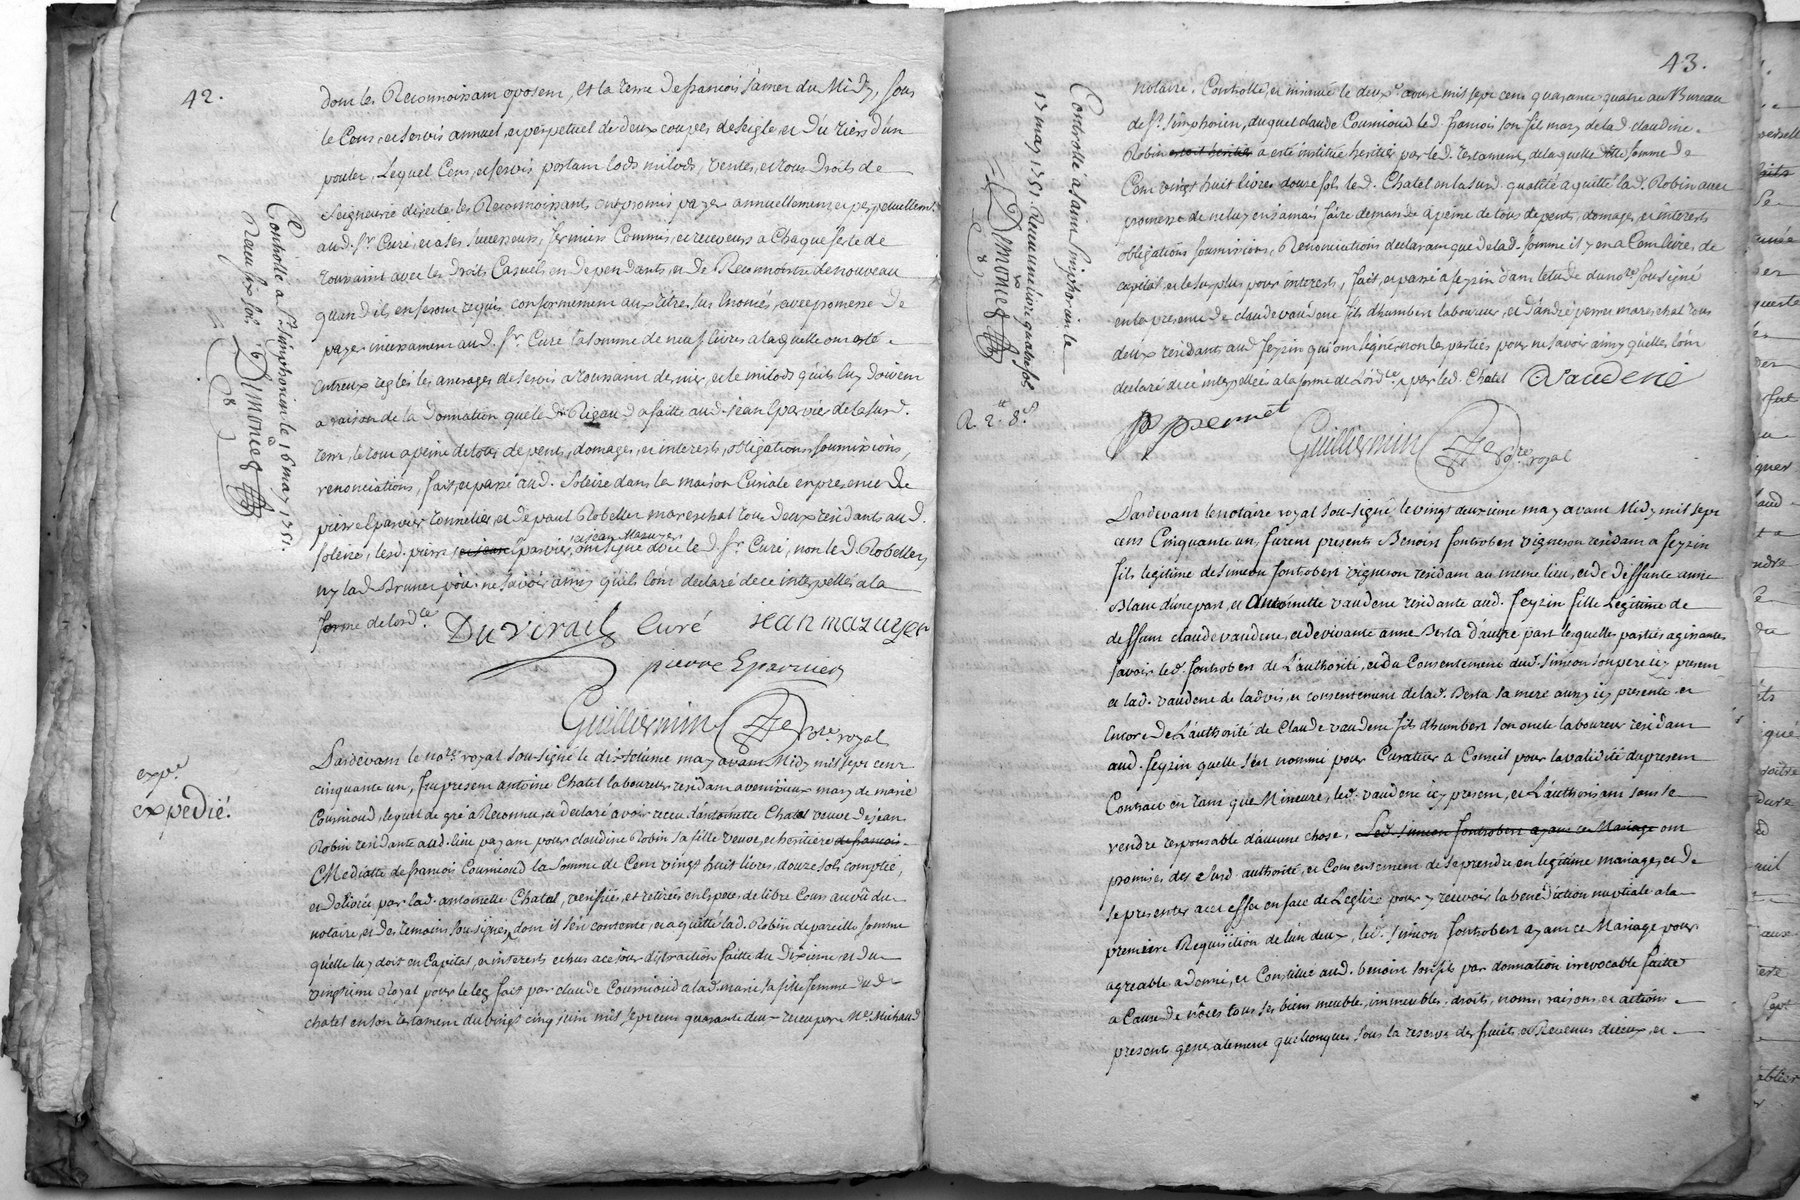 42.
dont les Reconnoissant oposent, et la terre de francois Samet du Midy, sous
le Cens, et servis annuel, et perpetuel de deux coupes de seigle, et du tiers d'un
poulet, Lequel Cens, et servis portant lods milods, ventes, et tous droits de
seigneurie directe, les Reconnoissants ont promis payer annuellement et perpetuellemt.
aud. Sr. Curé, et a ses successeurs, fermiers Commis, et receveurs a Chaque feste de
toussaint avec les droits Casuels en dependants, et de Reconnoistre de nouveau
quand ils en seront requis conformement aux titres sus énomés, avec promesse de
payer incessament aud. Sr. Curé la somme de neuf livres a laquelle ont esté
entreux reglés les arrerages de servis a toussaint dernier, et le milods quils luy doivent
a raison de la donnation que led. Rigaud a faitte aud. jean Eparvier de la susd.
terre, le tout a peine de tous depents, domages, et interests, obligations, soumissions,
renonciations, fait et passé aud. Soleize dans la maison Curiale en presence de
pierre Eparvier tonnelier, et de paul Robellet mareschal tous deux residants aud.
soleize, lesd. pierre et jean Eparvier, et jean Mazuyer ont signé avec led. Sr. Curé, non led. Robellet,
ny lad. Brunet pour ne savoir ainsy quils lont declaré de ce interpellés a la
forme de lordce.
Duvirail Curé jean mazuyer
pierre Eparvier
Guillermin Nore. royal
Controllé a St. Simphorien le 16 may 1751.
Receu six sols
Dimonceq
expé.
expedié.
Pardevant le nore. royal sousigné le dixseptieme may avant Midy mil sept cent
cinquante un, fut present antoine Chatel laboureur residant a venissieux mary de marie
Cournioud, lequel de gré a Reconnu, et declaré avoir receu d'antoinette Chatel veuve de jean
Robin residante aud. lieu payant pour claudine Robin sa fille veuve, et heritiere de francois
Mediatte de francois Cournioud la somme de Cent vingt huit livres, douze sols comptée,
et delivrée par lad. antoinette Chatel, verifiée, et retirée en especes de libre Cours au vû du
notaire, et des temoins sousignés, dont il s'en contente, et a quitté lad. Robin de pareille somme
qu'elle luy doit en Capital, et interests echus a ce jour distraction faitte du Dixieme, et du
vingtieme Royal pour le leg fait par claude Cournioud a lad. marie sa fille femme dud.
chatel en son testament du vingt cinq juin mil sept cent quarante deux receu par Me. Michaud
43.
notaire, Controllé, et insinué le deuxe. avril mil sept cent quarante quatre au Bureau
de St. simphorien, duquel claude Cournioud led. francois son fils mary de lad. claudine
Robin estoit heritier a esté institué heritier par led. testament, de laquelle somme de
Cent vingt huit livres douze sols led. Chatel en la susd. qualité a quitté lad. Robin avec
promesse de ne luy en jamais faire demande a peine de tous depents, domages, et interests
obligations soumissions, Renonciations declarant que de lad. somme il y en a Cent livres de
capital, et le surplus pour interests, fait, et passé a feyzin dans letude du nore. sousigné
en la presence de claude vaudene fils d'humbert laboureur, et d'andré perret mareschal tous
deux residants aud. feyzin qui ont signé, non les parties pour ne savoir ainsy quelles lont
declaré de ce interpellées a la forme de Lordce. par led. Chatel
C Vaudene
Perret
Guillermin Nore. royal
Controllé a saint Simphorien le
17 may 1751. Receu une livre quatre sols
Dimonceq
R. 2tt. 8s.
Pardevant le notaire royal sousigné le vingt deuxieme may avant Midy mil sept
cent Cinquante un, furent presents Benoist fontrobert vigneron residant a feyzin
fils legitime de simeon fontrobert vigneron residant au meme lieu, et de deffunte anne
Blanc d'une part, et Antoinette vaudene residante aud. feyzin fille Legitime de
deffunt claude vaudene, et de vivante anne Berta d'autre part lesquelles parties agissantes
savoir led. fontrobert de L'authorité, et du Consentement dud. simeon son pere icy present
et lad. vaudene de ladvis, et consentement de lad. Berta sa mere aussy icy presente et
encore de L'authorité de Claude vaudene fils d'humbert son oncle laboureur residant
aud. feyzin quelle sest nommé pour Curateur a Conseil pour la validité du present
Contract en tant que Mineure, led. vaudene icy present, et L'authorisant sans se
rendre responsable d'aucune chose, Led. simeon fontrobert ayant ce Mariage ont
promis des susd. authorité, et Consentement de se prendre en legitime mariage, et de
se presenter a cet effet en face de L'eglise pour y recevoir la benediction nuptiale a la
premiere Requisition de l'un deux, led. simeon fontrobert ayant ce Mariage pour
agreable a donné, et Constitué aud. benoist son fils par donnation irrevocable faitte
a Cause de nôces tous ses biens meubles, immeubles, droits, noms, raisons, et actions
presents generalement quelconques sous la reserve des fruits, et Revenus diceux, et